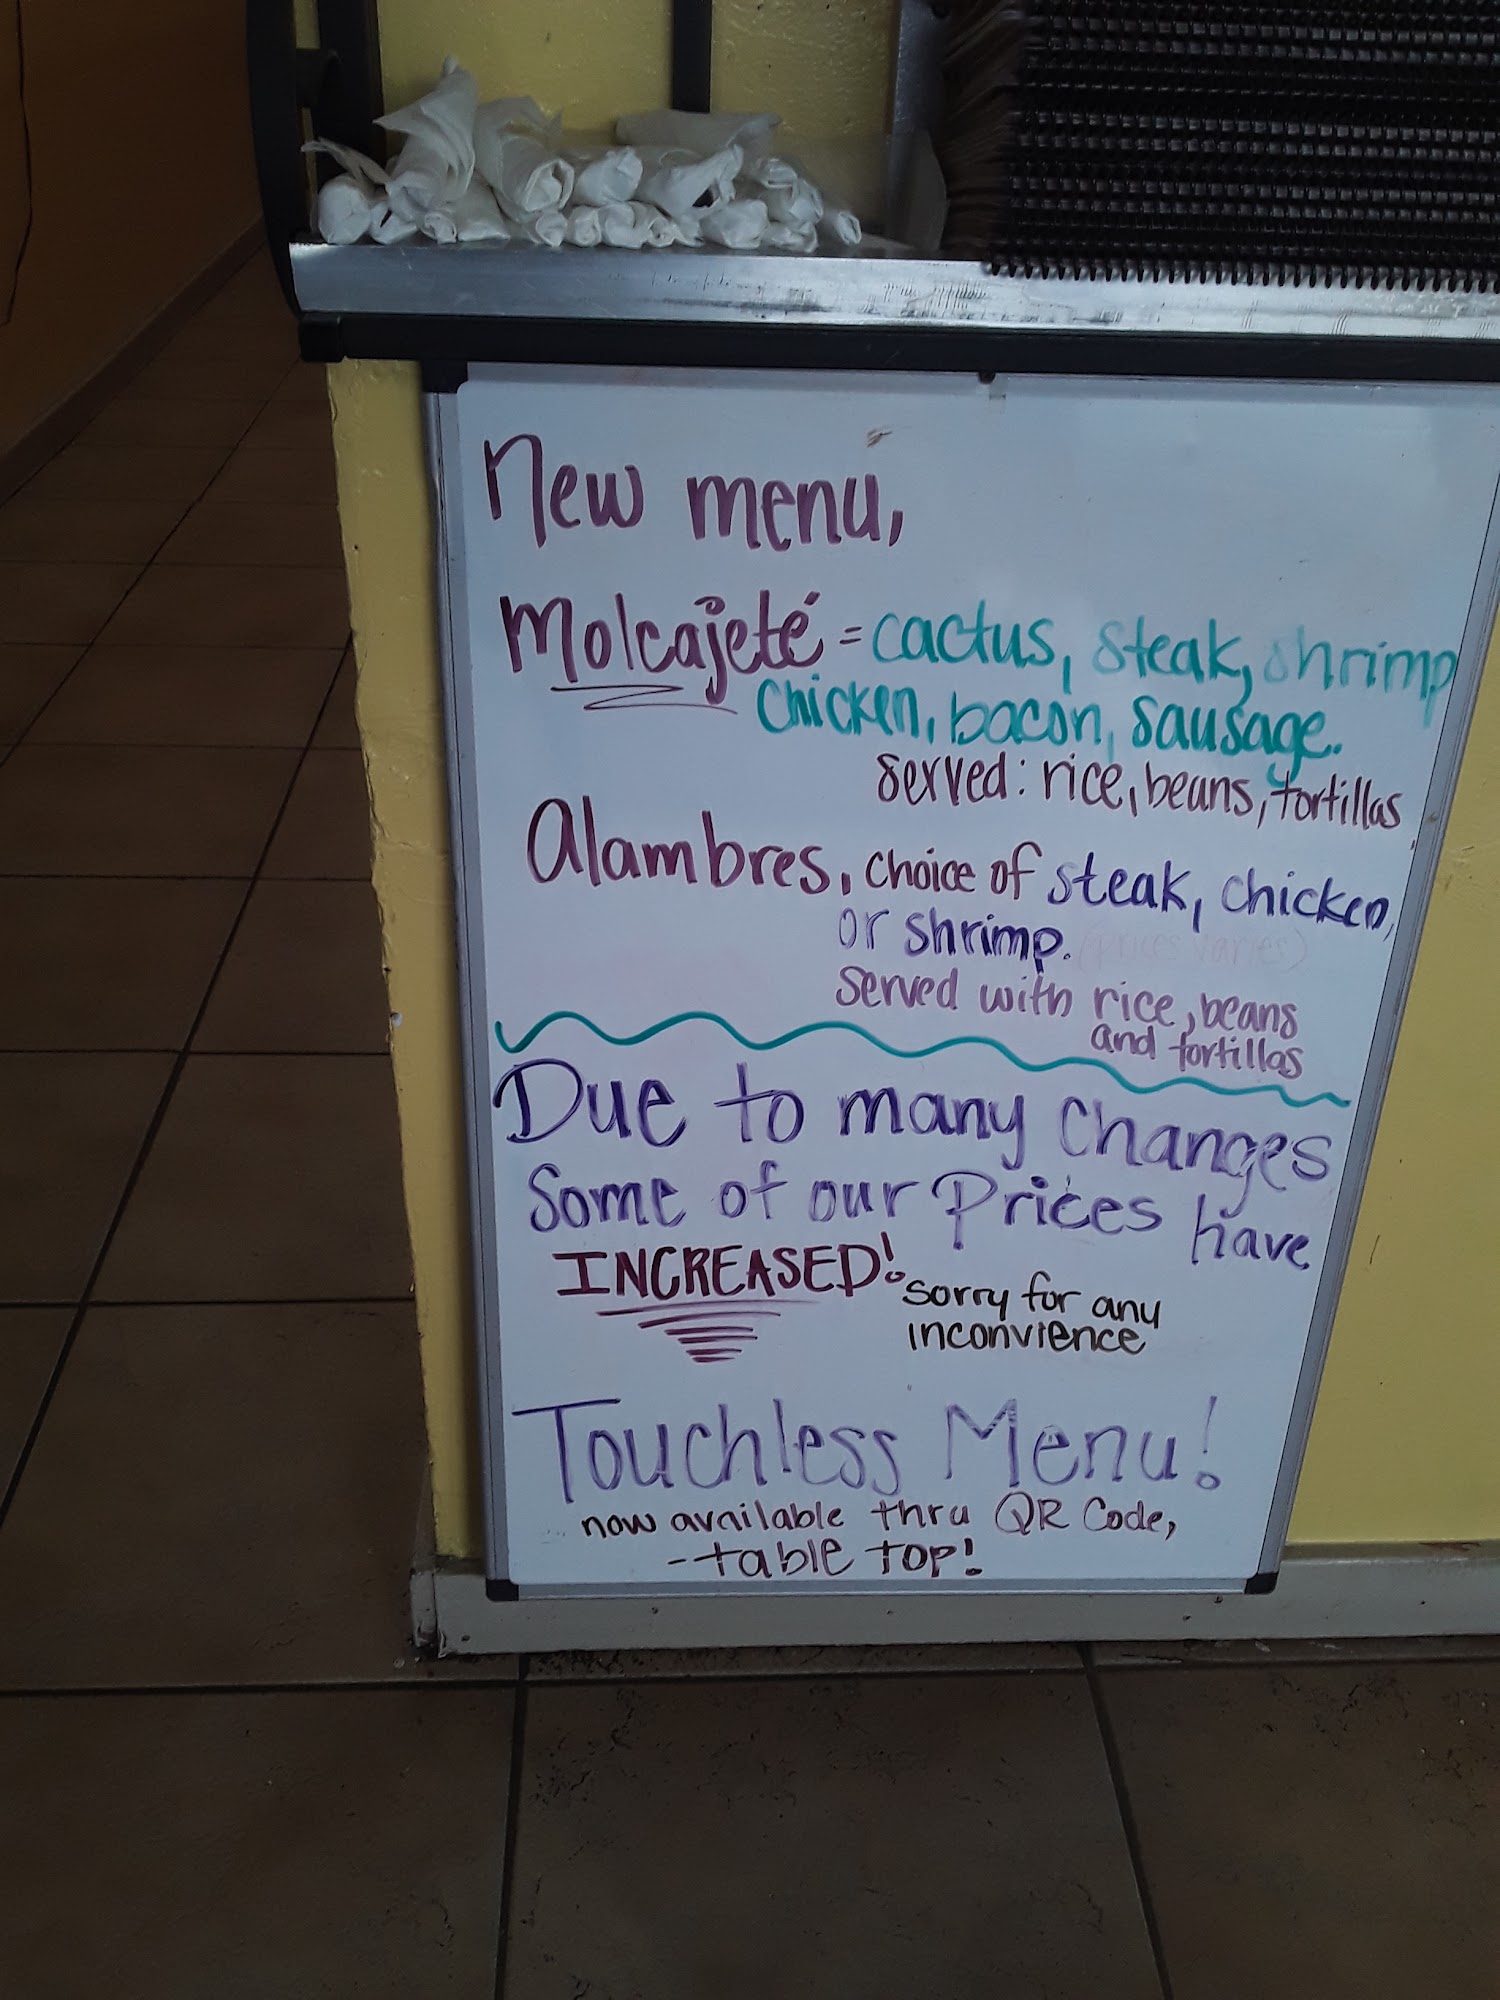 New menu,
Molcajeté = cactus, steak, shrimp
chicken, bacon, sausage.
served: rice, beans, tortillas
Alambres, choice of steak, chicken,
or shrimp. (prices varies)
served with rice, beans
and tortillas
Due to many changes
Some of our Prices have
INCREASED! sorry for any
inconvience
Touchless Menu!
now available thru QR Code,
-table top!